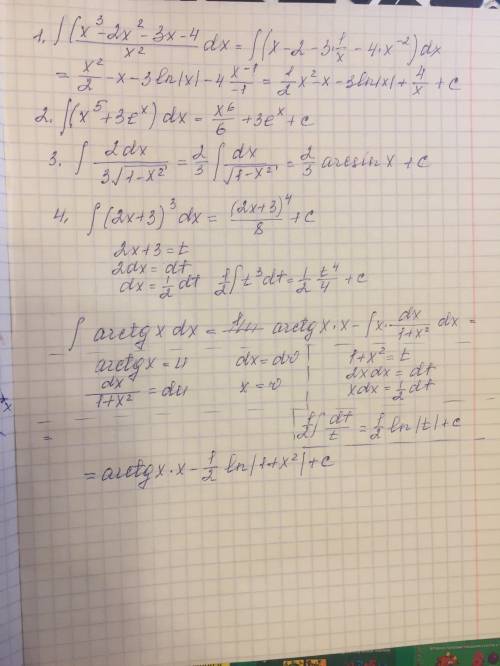 1. ∫ (x³-2x²-3x-4)/x² dx = ∫(x-2-3·1/x-4·x⁻²)dx
= x²/2 -x-3ln|x|-4 x⁻¹/-1 = 1/2 x²-x-3ln|x|+4/x+c
2. ∫(x⁵+3eˣ)dx = x⁶/6 +3eˣ+c
3. ∫ 2dx/(3√(1-x²)) = 2/3 ∫ dx/√(1-x²) = 2/3 arcsin x + c
4. ∫(2x+3)³dx = (2x+3)⁴/8 +c
2x+3=t
2dx=dt
dx=1/2 dt 1/2∫t³dt=1/2 t⁴/4 +c
∫ arctg x dx = arctg x·x-∫x·dx/(1+x²) dx =
arctg x = u dx=dv 1+x²=t
dx/(1+x²) = du x=v 2xdx=dt
xdx=1/2 dt
= 1/2∫dt/t = 1/2 ln|t|+c
= arctg x·x-1/2 ln|1+x²|+c